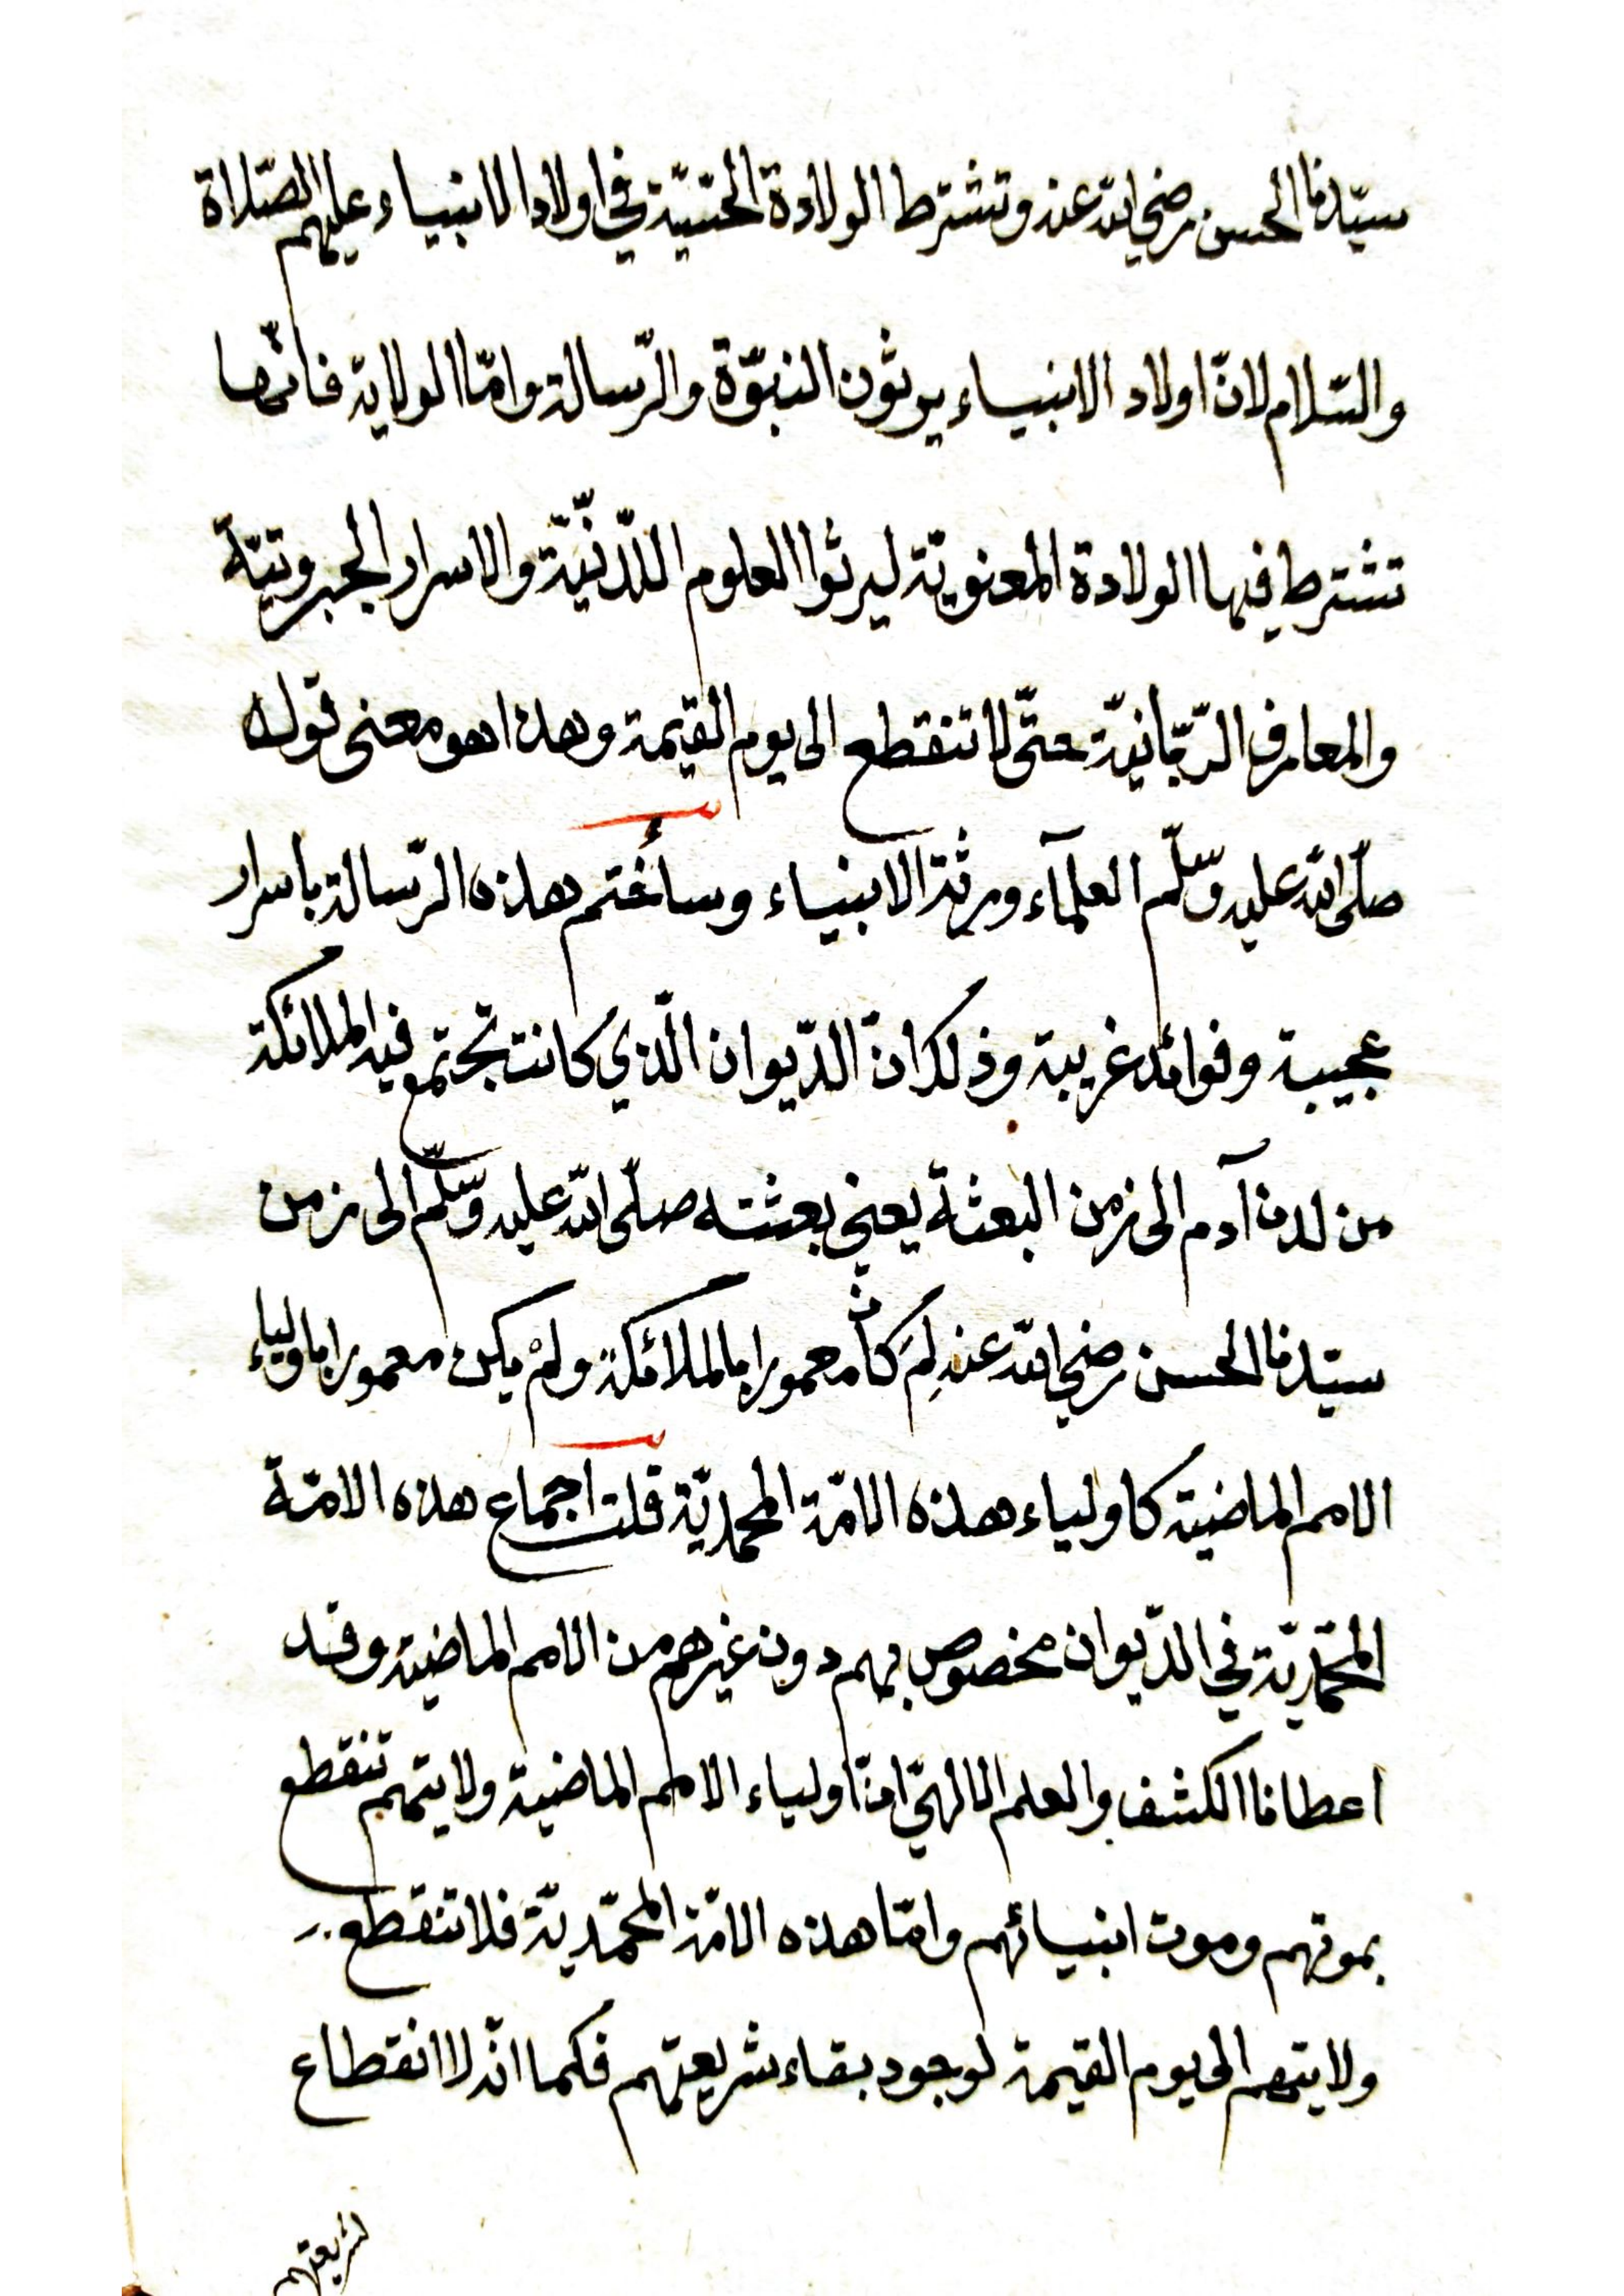 سيّدنا الحسن رضي الله عنه وتشترط الولادة الحسّيّة في اولاد الانبياء عليهم الصّلاة
والسّلام لانّ اولاد الانبياء يرثون النبوّة والرّسالة وامّا الولاية فانّها
تشترط فيها الولادة المعنويّة ليرثوا العلوم اللّدنّيّة والاسرار الجبروتيّة
والمعارف الرّبّانيّة حتّى لا تنقطع الى يوم القيمة وهذا هو معنى قوله
صلّى الله عليه وسّلم العلمآء ورثة الانبياء وسأختم هذه الرّسالة باسرار
عجيبة وفوائد غريبة وذلك انّ الدّيوان الّذي كانت تجتمع فيه الملائكة
من لدن آدم الى زمن البعثة يعني بعثته صلّى الله عليه وسّلم الى زمن
سيّدنا الحسن رضي الله عنه لِمَ كان معمورا بالملائكة ولمْ يكن معمورا باولياء
الامم الماضية كاولياء هذه الامّة المحمديّة قلت اجماع هذه الامّة
المحمّديّة في الدّيوان مخصوص بهم دون غيرهم من الامم الماضية وقد
اعطانا الكشف والعلم الالهيّ انّ اولياء الامم الماضية ولايتهم تنقطع
بموتهم وموت انبيائهم وامّا هذه الامّة المحمّديّة فلا تنقطع
ولايتهم الى يوم القيمة لوجود بقاء شريعتهم فكما انّه لا انقطاع
لشريعتهم